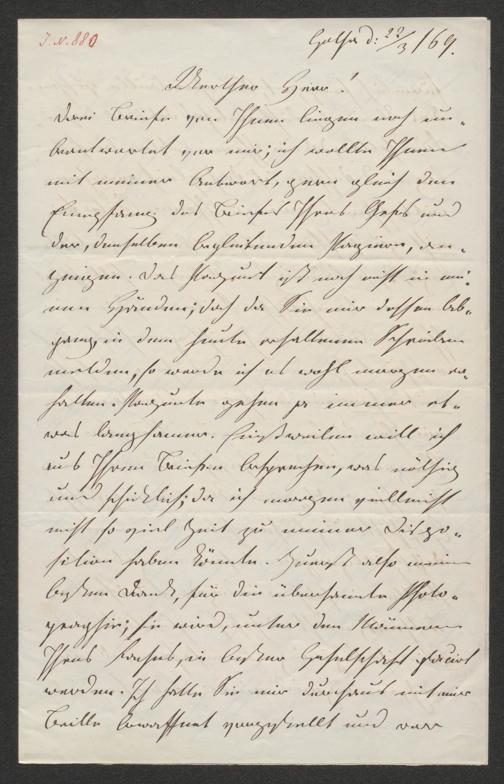 J. N. 880
Gotha d: 22/3 /69.
Werther Herr!
Drei Briefe von Ihnen liegen noch un-
beantwortet vor mir; ich wollte Ihnen
mit meiner Antwort, gern gleich den
Empfang des Briefes Ihres Chefs und
der, denselben begleitenden Papiere, an-
zeigen. Das Packet ist noch nicht in mei-
nen Händen; doch da Sie mir dessen Ab-
gang, in dem heute erhaltenen Schreiben
melden, so werde ich es wohl morgen er-
halten. Packete gehen ja immer et-
was langsamer. Einstweilen will ich
aus Ihren Briefen besprechen, was nöthig
und schicklich; da ich morgen vielleicht
nicht so viel Zeit zu meiner Dispo-
sition haben könnte. Zuerst also meinen
besten Dank, für die übersandte Photo-
graphie; sie wird, unter den Männern
Ihres Faches, in bester Gesellschaft placirt
werden. Ich hatte Sie mir durchaus mit einer
Brille bewaffnet vorgestellt und war